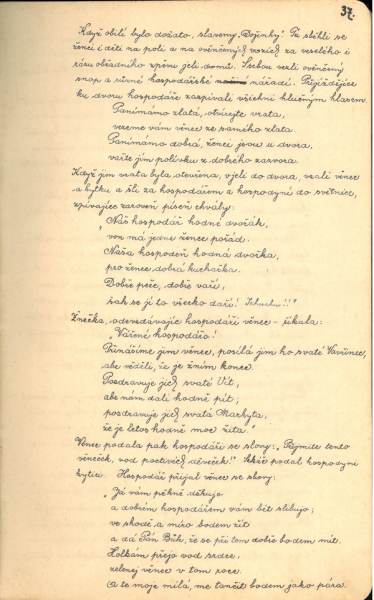 37.
Když obilí bylo dožato, slaveny „Dožinky." Tu sběhli se
ženci i děti na poli a na ověnčených vozích za veselého i
rázu obřadného zpěvu jeli domů. Sebou vezli ověnčený
snop a různé hospodářské nářadí. Přijíždějíce
ku dvoru hospodáře zazpívali všichni hlučným hlasem:
Panímámo zlatá, otvírejte vrata,
vezeme vám věnec ze samého zlata.
Panímámo dobrá, ženci jsou u dvora,
vařte jim polívku z dobrého zázvora.
Když jim vrata byla otevřena, vjeli do dvora, vzali věnec
a kytku a šli za hospodářem a hospodyní do světnice,
zpívajíce zároveň píseň chvály:
„Náš hospodář hodné dvořák,
von má jedne žence pořád.
Naša hospodeň hodná dvořka,
pro žence dobrá kuchařka.
Dobře peče, dobře vaří,
šak se jí to všecko daří! Juchuchu!!"
Žnečka, odevzdávajíc hospodáři věnec – říkala:
„Vážené hospodářo!
Přinášíme jim věnec, posílá jim ho svaté Vavřinec,
abe věděli, že je žním konec.
Pozdravuje jich svaté Vít,
abe nám dali hodně pít;
pozdravuje jich svatá Markyta,
že je letos hodně moc žita."
Věnec podala pak hospodáři se slovy: „Přijmite tento
věneček, vod poctivéch děveček!" Sekáč podal hospodyni
kytici. Hospodář přijal věnec se slovy:
„Já vám pěkně děkujo
a dobrém hospodářem vám bét slibujo;
ve shodě a míro bodem žít
a dá Pán Bůh, že se při tom dobře bodem mít.
Holkám přejo vod srdce,
zelenej věnec v tom roce.
A te moje milá, me tančit bodem jako pára.